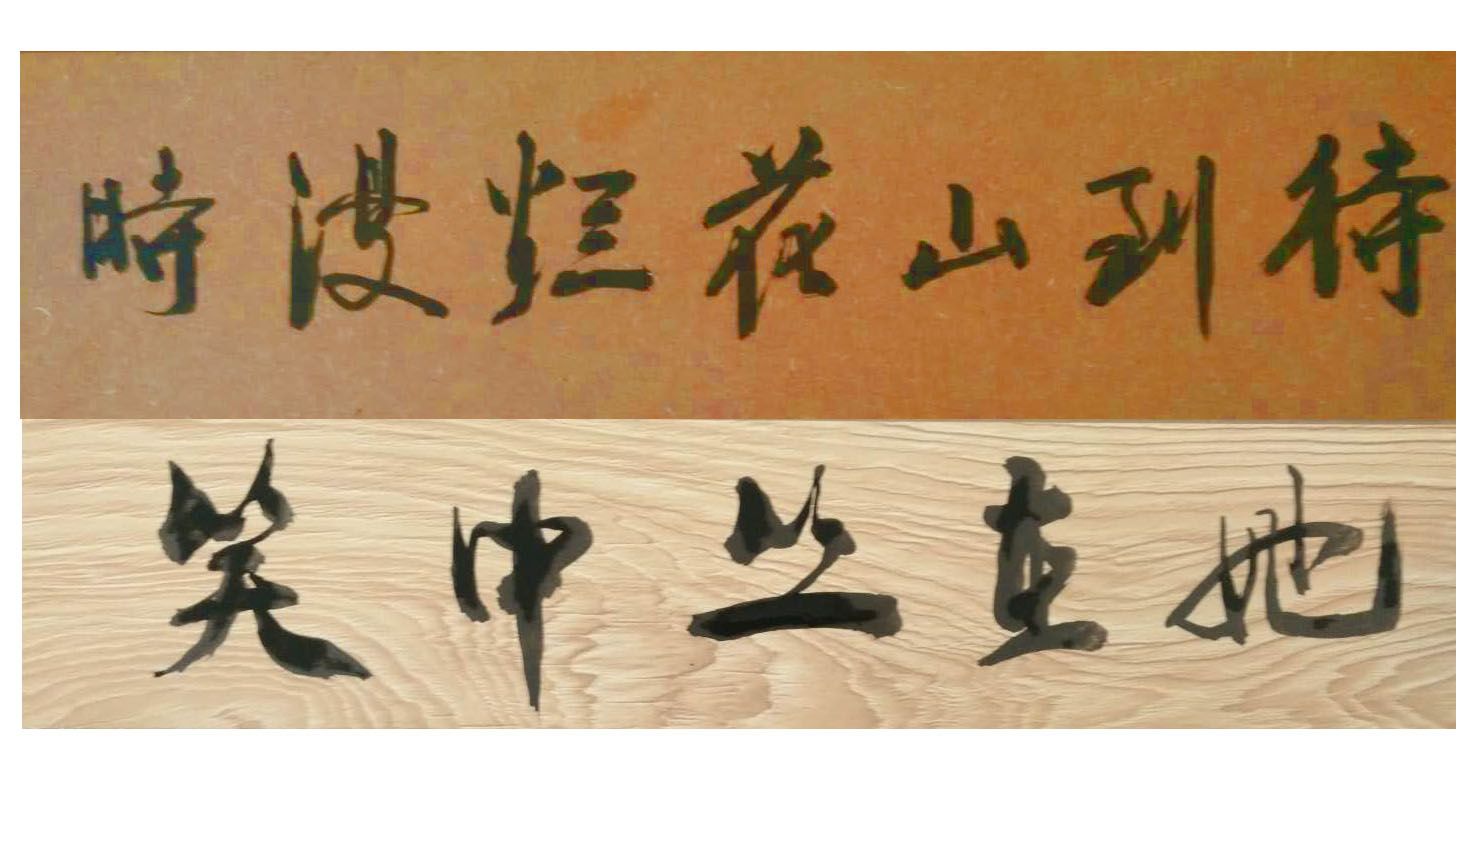 待到山花烂漫時
她在丛中笑